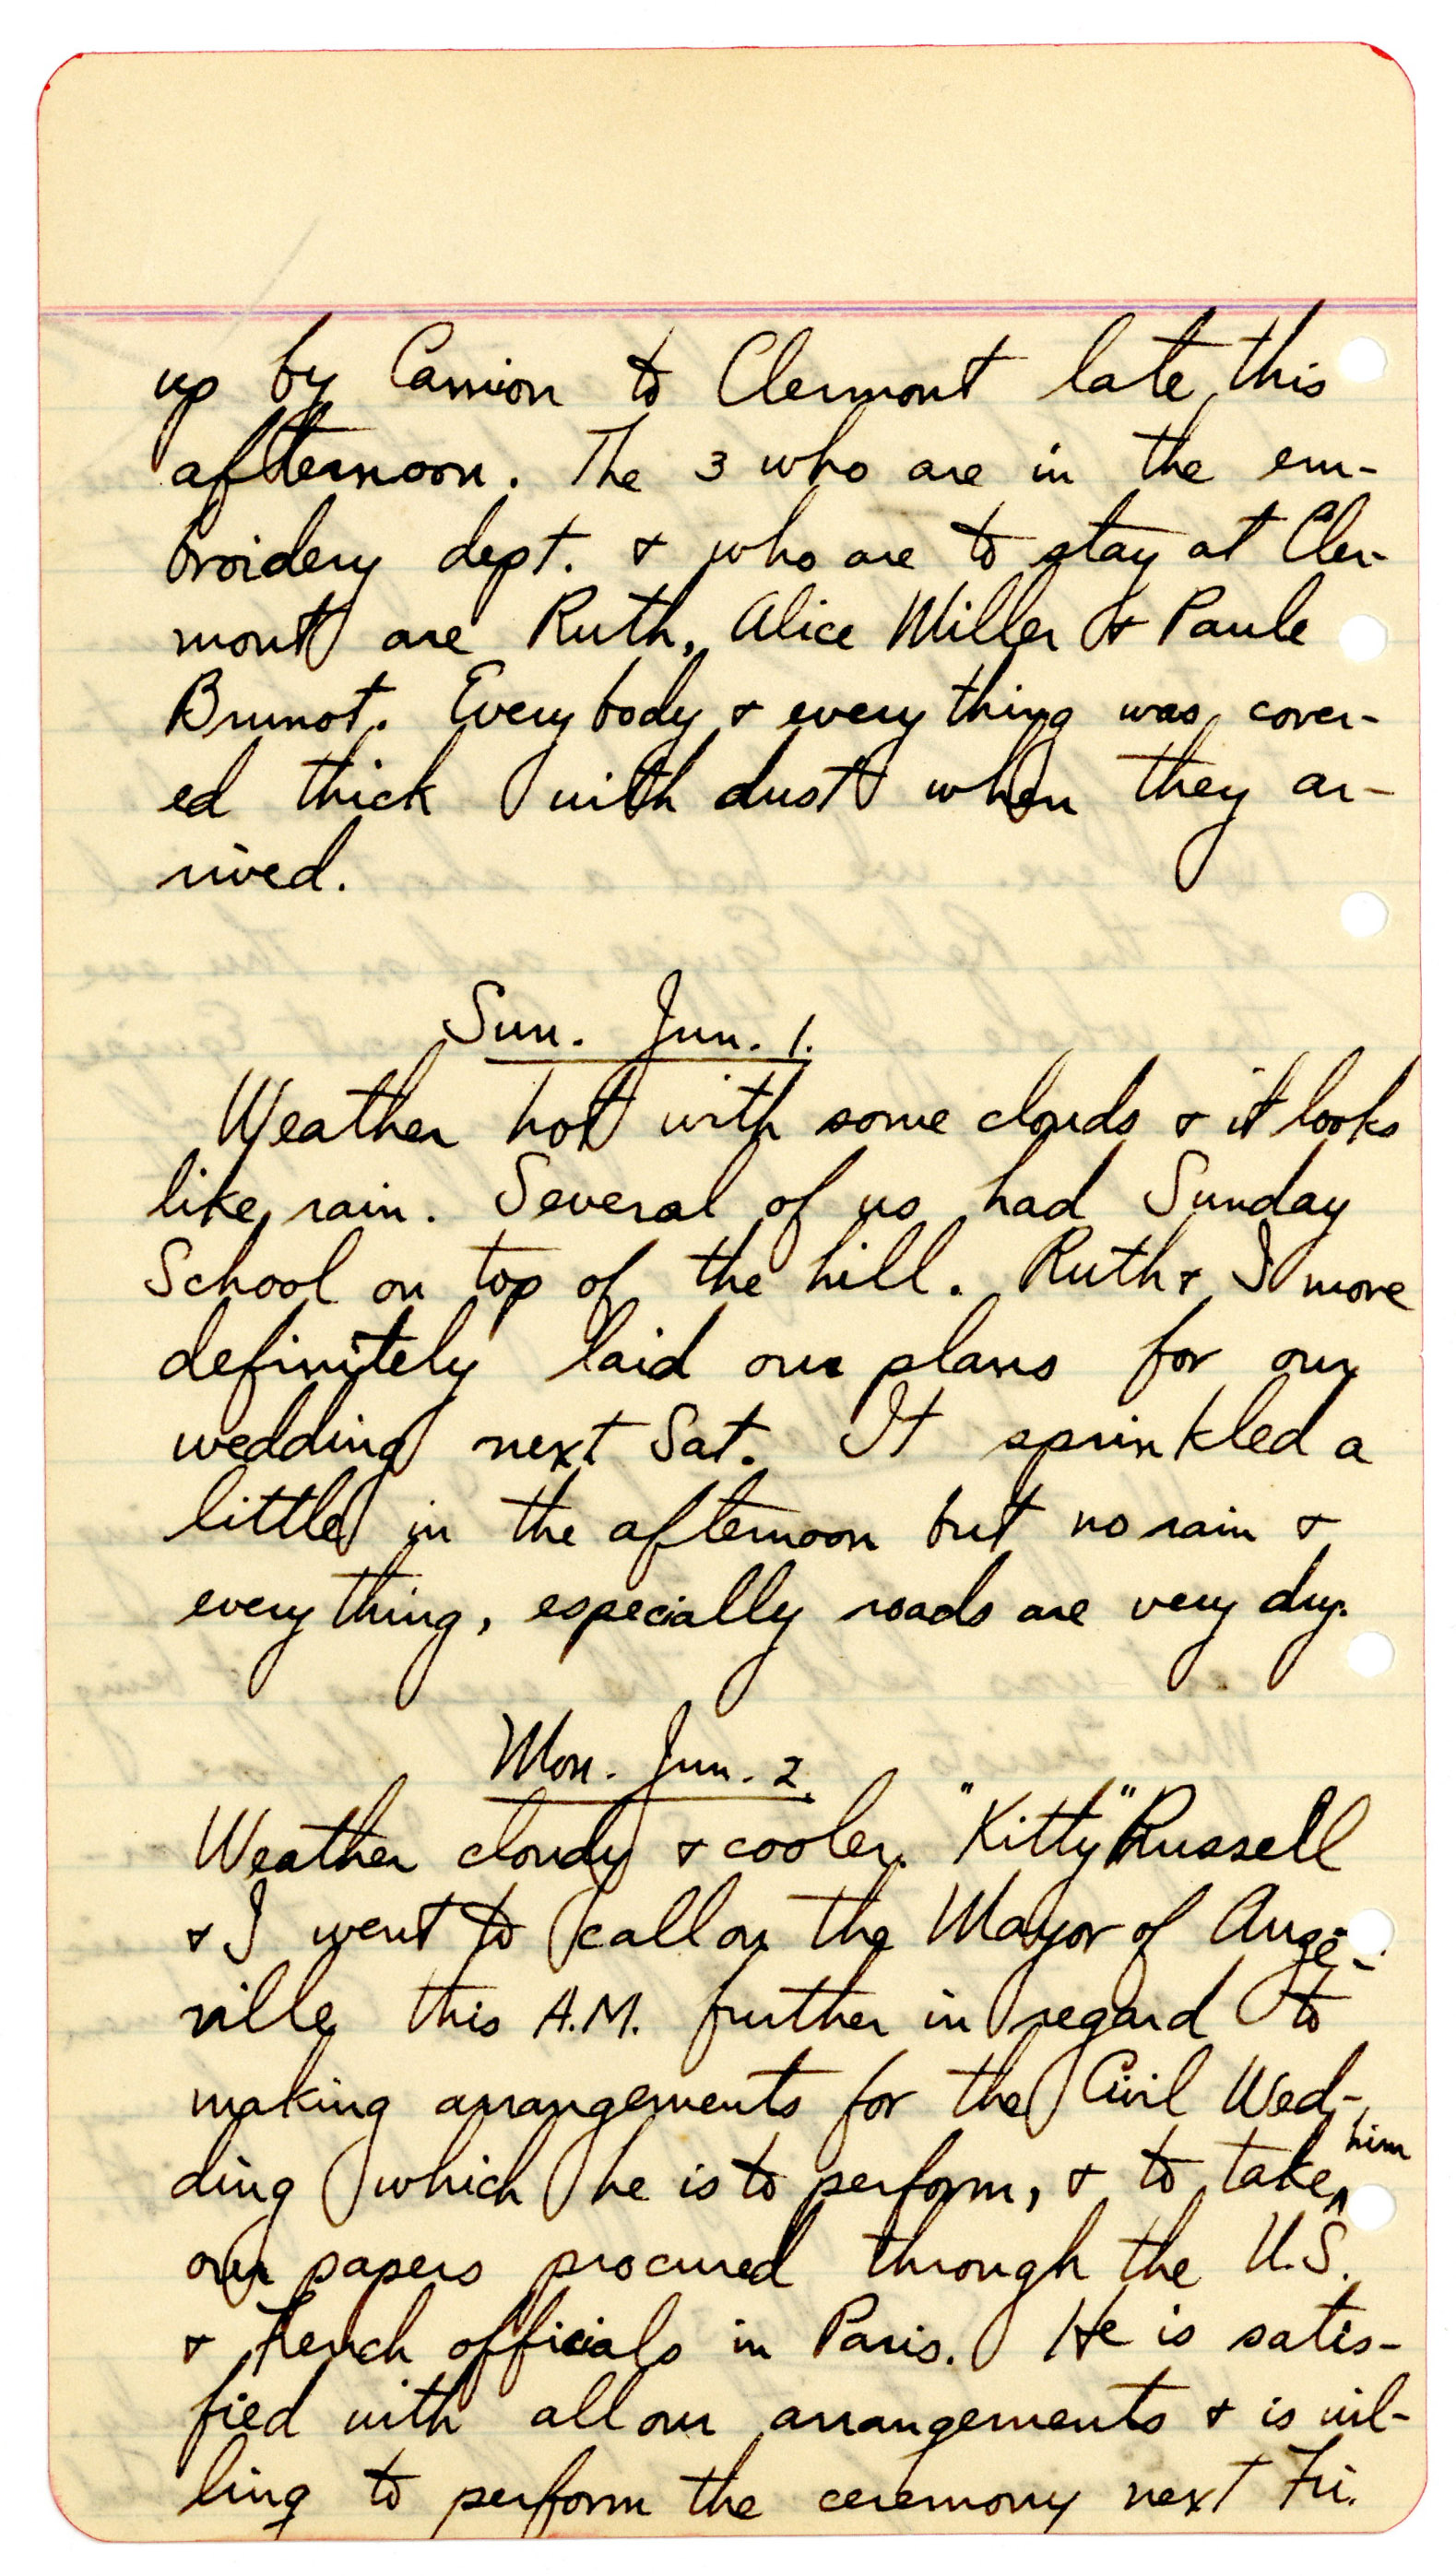 up by Camion to Clermont late this
afternoon. The 3 who are in the em-
broidery dept. & who are to stay at Cler-
mont are Ruth, Alice Miller & Paule
Brunot. Everybody & everything was cover-
ed thick with dust when they ar-
rived.
Sun. Jun. 1.
Weather hot with some clouds & it looks
like rain. Several of us had Sunday
School on top of the hill. Ruth & I more
definitely laid our plans for our
wedding next Sat. It sprinkled a
little in the afternoon but no rain &
everything, especially roads are very dry.
Mon. Jun. 2.
Weather cloudy & cooler. "Kitty" Russell
& I went to call on the Mayor of Auge-
ville this A.M. further in regard to
making arrangements for the Civil Wed-
ding which he is to perform, & to take ^him
our papers procured through the U.S.
& French officials in Paris. He is satis-
fied with all our arrangements & is wil-
ling to perform the ceremony next Fri.